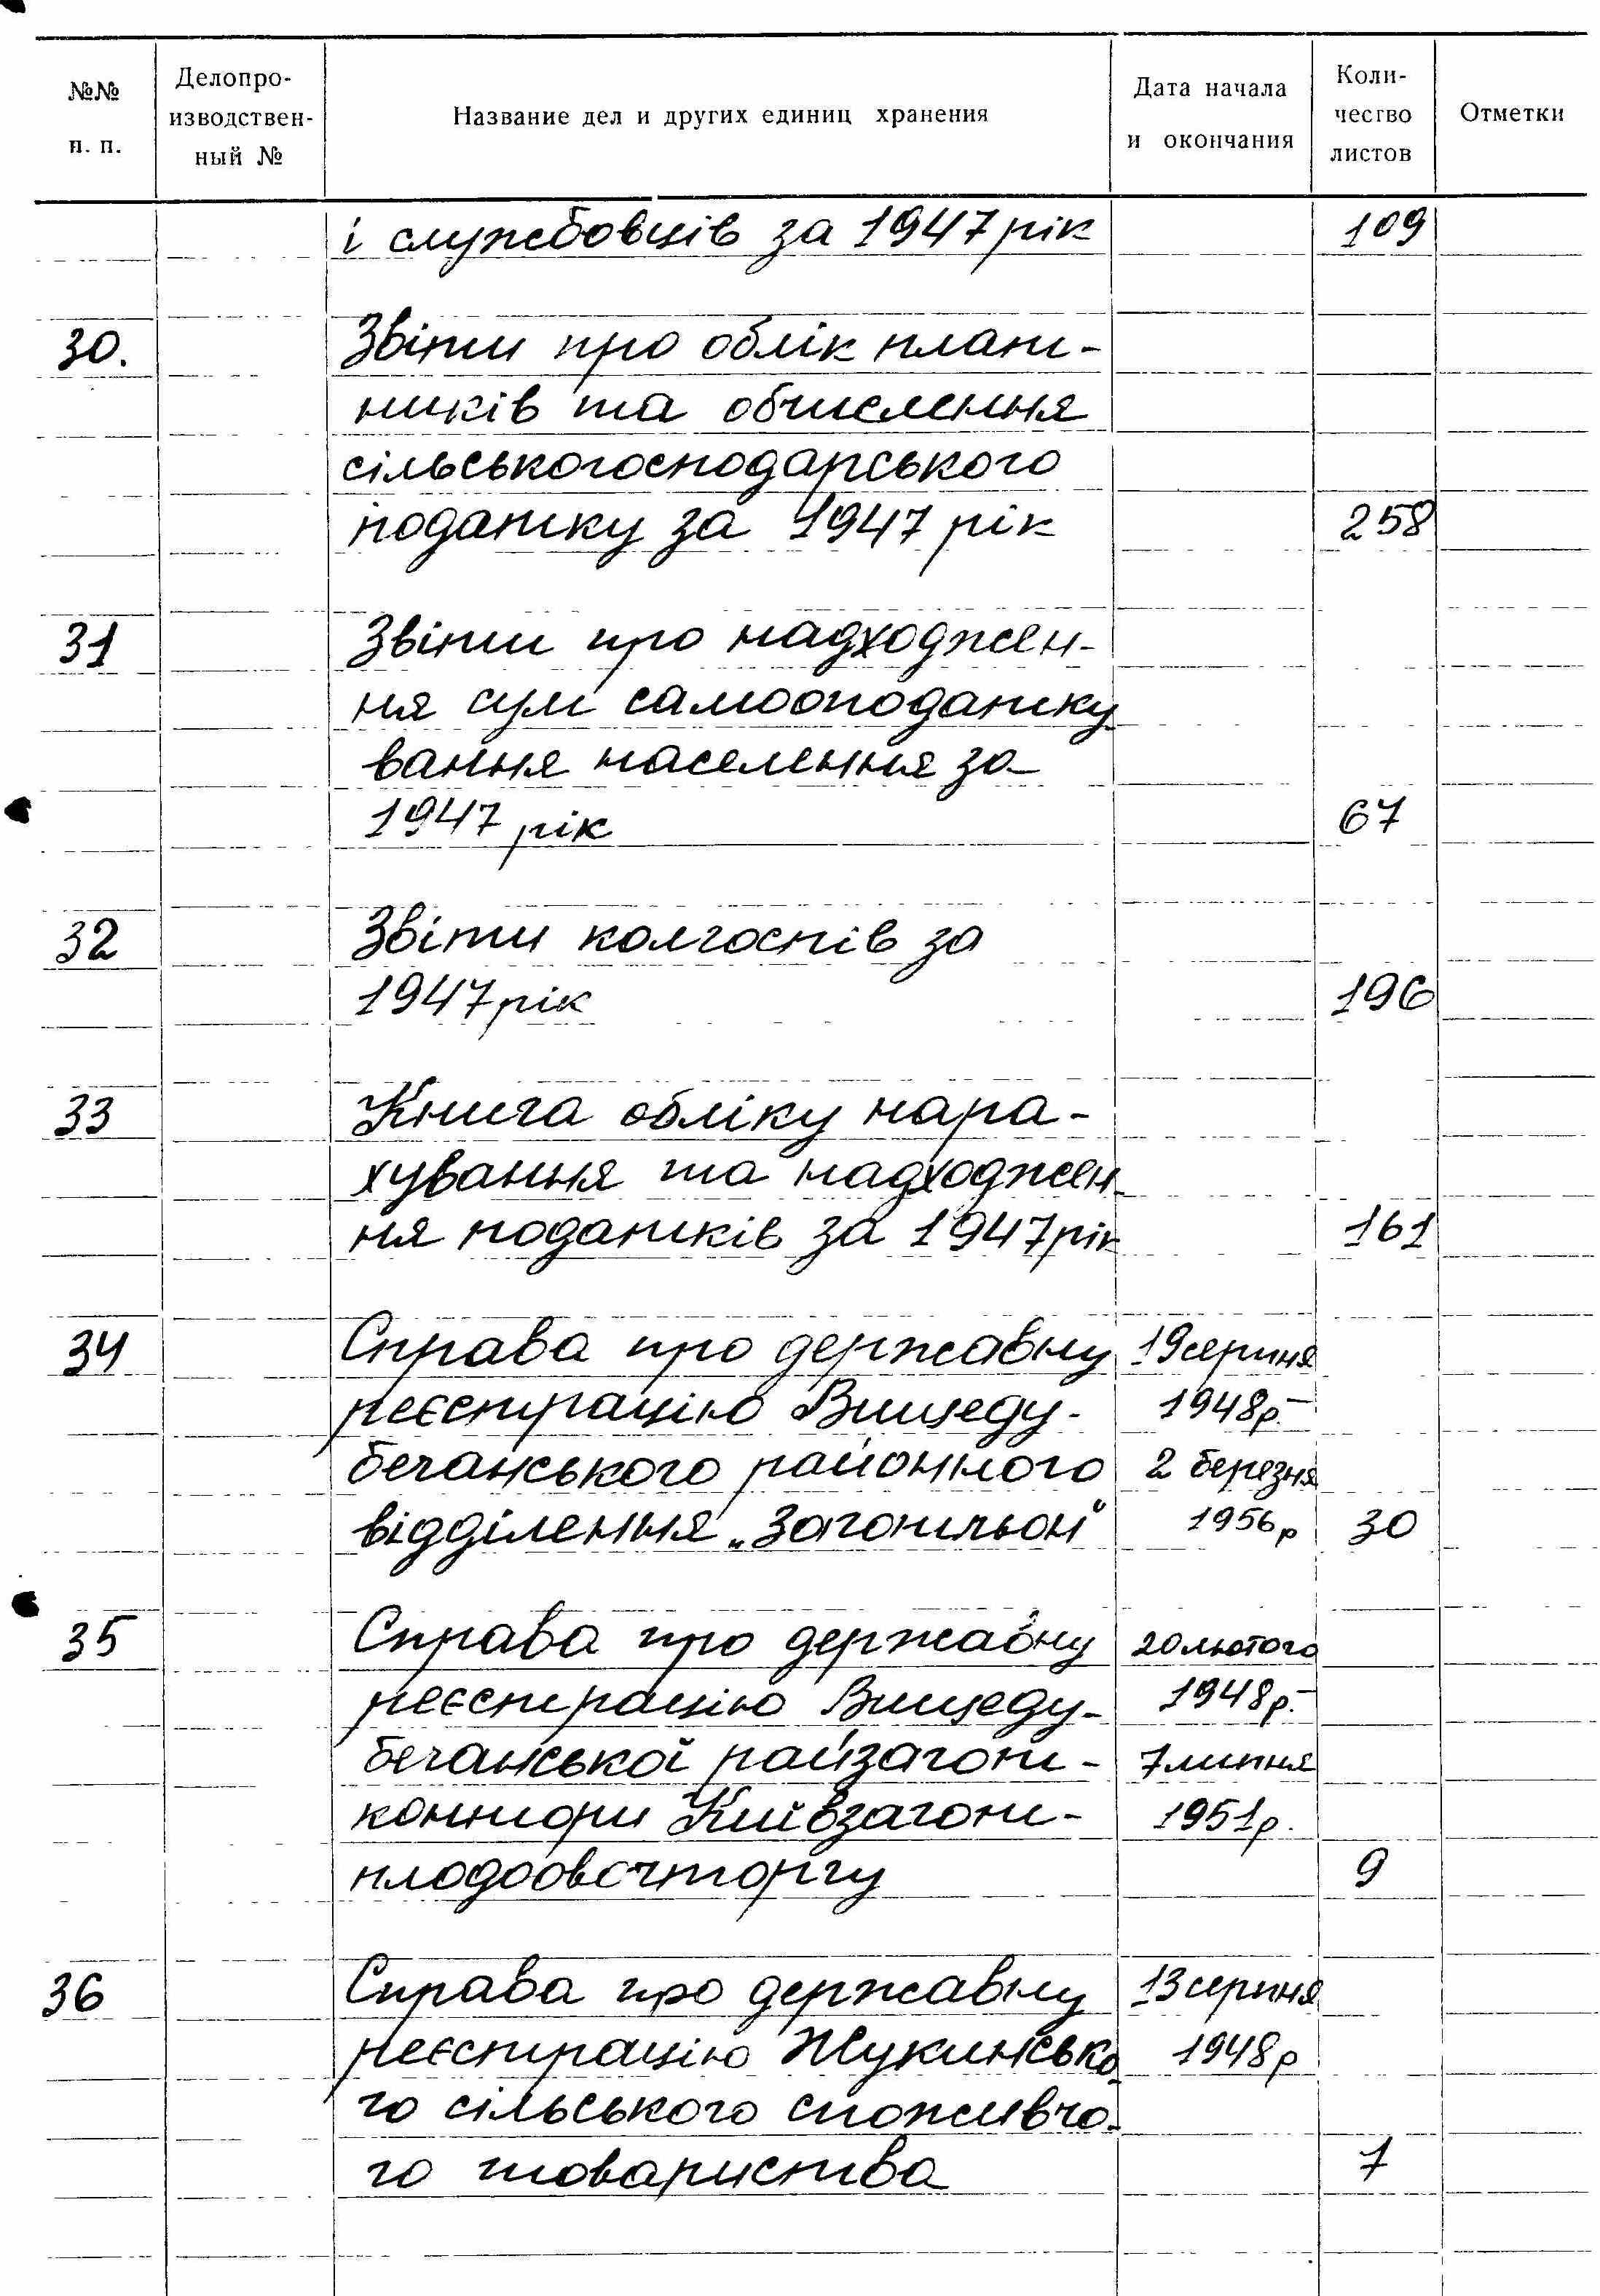 №№ п. п.
Делопро-
изводствен-
ный №
Название дел и других единиц хранения
Дата начала
и окончания
Коли-
чество
листов
Отметки
і службовців за 1947 рік 109
30. Звіти про облік плат-
ників та обчислення
сільськогосподарського
податку за 1947 рік 258
31 Звіти про надходжен-
ня сум самооподатку
вання населення за
1947 рік 67
32 Звіти колгоспів за
1947 рік 196
33 Книга обліку нара-
хування та надходжен
ня податків за 1947 рік 161
34 Справа про державну 19 серпня
реєстрацію Вищеду- 1948 р. –
бечанського районного 2 березня
відділення „Заготльон" 1956 р 30
35 Справа про державну 20 лютого
реєстрацію Вищеду- 1948 р. –
бечанської райзагот- 7 липня
контори Київзагот- 1951 р.
плодоовочторгу 9
36 Справа про державну 13 серпня
реєстрацію Жукинсько 1948 р
го сільського споживчо-
го товариства 7